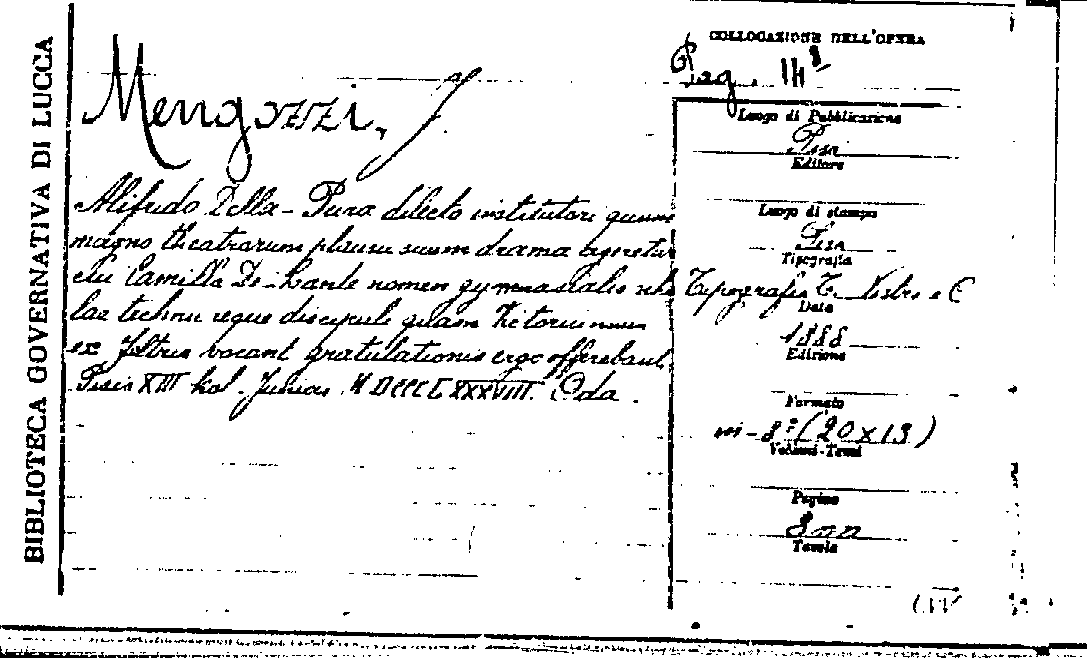 BIBLIOTECA GOVERNATIVA DI LUCCA
Mengozzi, J.
Alifredo Della-Pura dilecto institutori quum
magno theatrorum plausu suum drama ageretur
cui Camilla De-Lante nomen gymnasialis
discipuli quam
ex Istria vocant gratulationis ergo offerebant.
Pisis XIII kal. Junias MDCCCLXXXVIII. Oda.
COLLOCAZIONE DELL'OPERA
Luogo di Pubblicazione
Pisa
Editore
Luogo di stampa
Pisa
Tipografia
Tipografia T. Nistri e C
Data
1888
Edizione
Formato
in-8º (20x13)
Volumi-Tomi
Pagine
8 nn
Tavole